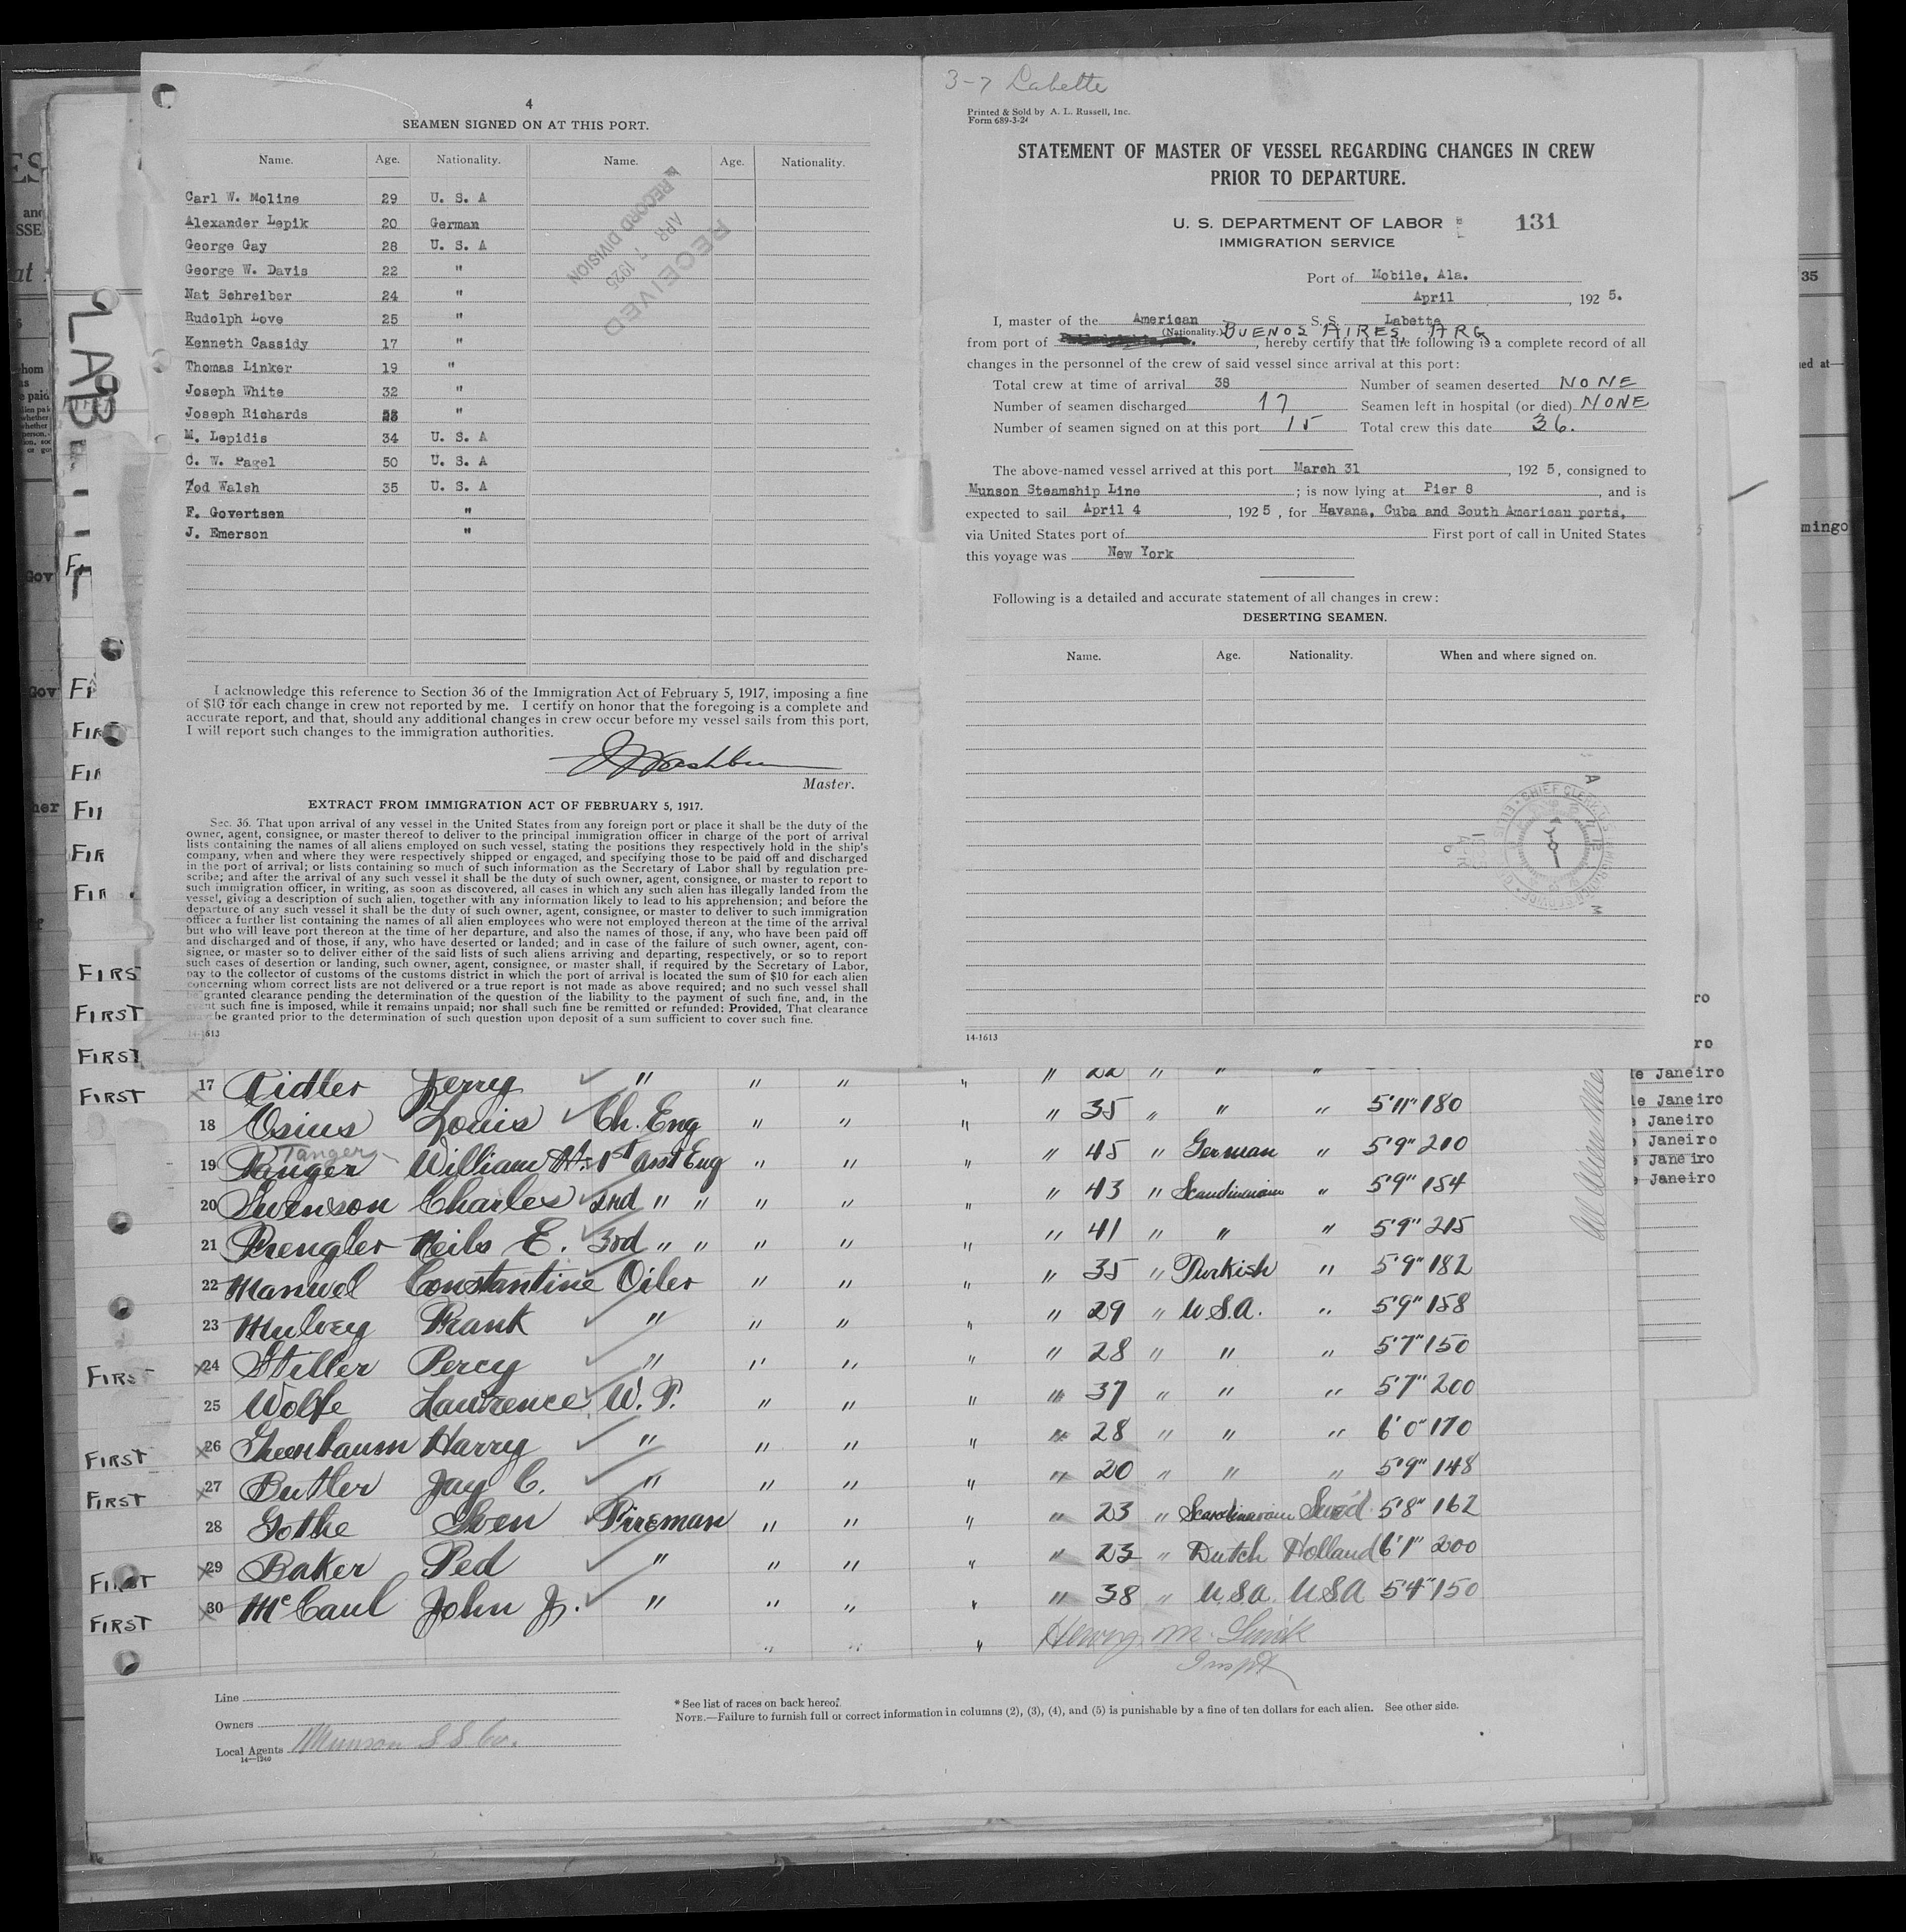 4
SEAMEN SIGNED ON AT THIS PORT.
Name. Age. Nationality. Name. Age. Nationality.
Carl W. Moline 29 U. S. A
Alexander Lepik 20 German
George Gay 28 U. S. A
George W. Davis 22 "
Nat Schreiber 24 "
Rudolph Love 25 "
Kenneth Cassidy 17 "
Thomas Linker 19 "
Joseph White 32 "
Joseph Richards "
M. Lepidis 34 U. S. A
C. W. Pagel 50 U. S. A
Zod Walsh 35 U. S. A
F. Govertsen "
J. Emerson "
RECEIVED
APR 7 1925
RECORD DIVISION
I acknowledge this reference to Section 36 of the Immigration Act of February 5, 1917, imposing a fine
of $10 for each change in crew not reported by me. I certify on honor that the foregoing is a complete and
accurate report, and that, should any additional changes in crew occur before my vessel sails from this port,
I will report such changes to the immigration authorities.
Master.
EXTRACT FROM IMMIGRATION ACT OF FEBRUARY 5, 1917.
Sec. 36. That upon arrival of any vessel in the United States from any foreign port or place it shall be the duty of the
owner, agent, consignee, or master thereof to deliver to the principal immigration officer in charge of the port of arrival
lists containing the names of all aliens employed on such vessel, stating the positions they respectively hold in the ship's
company, when and where they were respectively shipped or engaged, and specifying those to be paid off and discharged
in the port of arrival; or lists containing so much of such information as the Secretary of Labor shall by regulation pre-
scribe; and after the arrival of any such vessel it shall be the duty of such owner, agent, consignee, or master to report to
such immigration officer, in writing, as soon as discovered, all cases in which any such alien has illegally landed from the
vessel, giving a description of such alien, together with any information likely to lead to his apprehension; and before the
departure of any such vessel it shall be the duty of such owner, agent, consignee, or master to deliver to such immigration
officer a further list containing the names of all alien employees who were not employed thereon at the time of the arrival
but who will leave port thereon at the time of her departure, and also the names of those, if any, who have been paid off
and discharged and of those, if any, who have deserted or landed; and in case of the failure of such owner, agent, con-
signee, or master so to deliver either of the said lists of such aliens arriving and departing, respectively, or so to report
such cases of desertion or landing, such owner, agent, consignee, or master shall, if required by the Secretary of Labor,
pay to the collector of customs of the customs district in which the port of arrival is located the sum of $10 for each alien
concerning whom correct lists are not delivered or a true report is not made as above required; and no such vessel shall
be granted clearance pending the determination of the question of the liability to the payment of such fine, and, in the
event such fine is imposed, while it remains unpaid; nor shall such fine be remitted or refunded: Provided, That clearance
may be granted prior to the determination of such question upon deposit of a sum sufficient to cover such fine.
14-1613
3-7 Labette
Printed & Sold by A. L. Russell, Inc.
Form 689-3-24
STATEMENT OF MASTER OF VESSEL REGARDING CHANGES IN CREW
PRIOR TO DEPARTURE.
U. S. DEPARTMENT OF LABOR 131
IMMIGRATION SERVICE
Port of Mobile, Ala.
April , 192 5.
I, master of the American S. S. Labette
(Nationality.) BUENOS AIRES ARG
from port of , hereby certify that the following is a complete record of all
changes in the personnel of the crew of said vessel since arrival at this port:
Total crew at time of arrival 38 Number of seamen deserted NONE
Number of seamen discharged 17 Seamen left in hospital (or died) NONE
Number of seamen signed on at this port 15 Total crew this date 36.
The above-named vessel arrived at this port March 31 , 192 5, consigned to
Munson Steamship Line ; is now lying at Pier 8 , and is
expected to sail April 4 , 192 5 , for Havana, Cuba and South American ports,
via United States port of First port of call in United States
this voyage was New York
Following is a detailed and accurate statement of all changes in crew:
DESERTING SEAMEN.
Name. Age. Nationality. When and where signed on.
14-1613
FIRST 17 Ridler Jerry " " " " " 22 " " "
18 Osius Louis Ch. Eng " " " " 35 " " " 5'11" 180
Tanger
19 Panger William H. 1st Asst Eng " " " " 45 " German " 5'9" 200
20 Swenson Charles 2nd " " " " " " 43 " Scandinavian " 5'9" 184
21 Prengler Neils E. 3rd " " " " " " 41 " " " 5'9" 215
22 Manuel Constantine Oiler " " " " 35 " Turkish " 5'9" 182
23 Mulvey Frank " " " " " 29 " U.S.A. " 5'9" 158
FIRST 24 Stiller Percy " " " " " 28 " " " 5'7" 150
25 Wolfe Lawrence W. T. " " " " 37 " " " 5'7" 200
FIRST 26 Greenbaum Harry " " " " " 28 " " " 6'0" 170
FIRST 27 Butler Jay C. " " " " " 20 " " " 5'9" 148
28 Gothe Sven Fireman " " " " 23 " Scandinavian Swed 5'8" 162
FIRST 29 Baker Ped " " " " " 23 " Dutch Holland 6'1" 200
FIRST 30 McCaul John J. " " " " " 38 " U.S.A. USA 5'4" 150
Inspt
Line
Owners
Local Agents Munson S S Co.
14-1240
* See list of races on back hereof.
NOTE.—Failure to furnish full or correct information in columns (2), (3), (4), and (5) is punishable by a fine of ten dollars for each alien. See other side.
FIRST
FIRST
FIRST
de Janeiro
de Janeiro
Janeiro
Janeiro
Janeiro
Janeiro
mingo
35